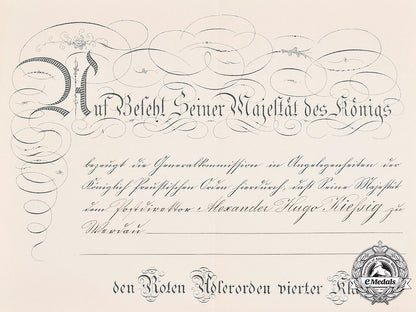 Auf Befehl Seiner Majestät des Königs
bezeugt die Generalkommission in Angelegenheiten der
Königlich Preußischen Orden hierdurch, daß Seine Majestät
dem Postdirektor Alexander Hugo Kießig zu
Werdau
den Roten Adlerorden vierter Kla
eMedals